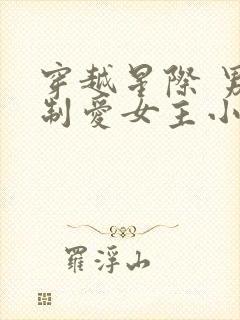 穿越星際 男
制愛女主小
羅浮山